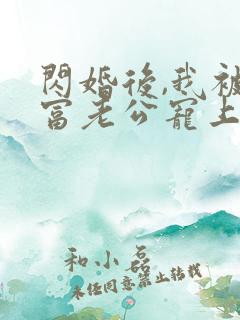 閃婚後,我被
富老公寵上
和小磊
未經同意禁止轉載